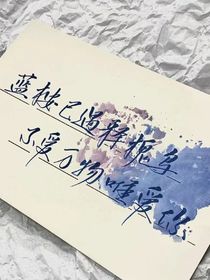 蓝桉已遇释槐鸟
不爱万物唯爱你